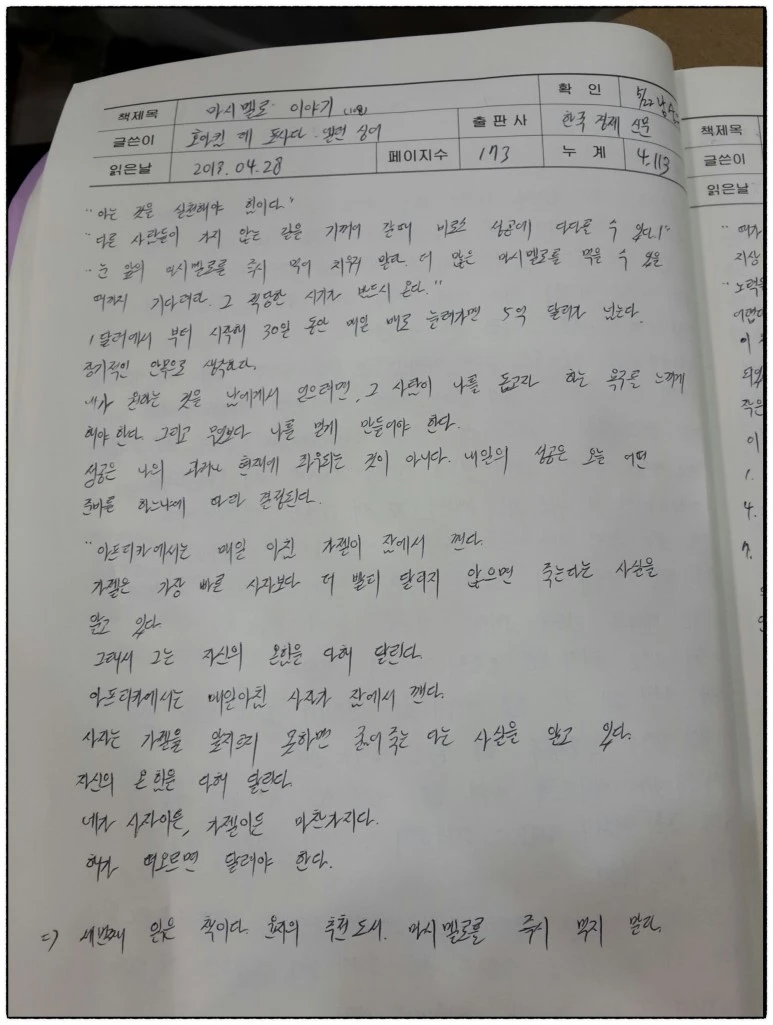 책제목 마시멜로 이야기 확 인 5/22
글쓴이 호아킴 데 포사다 · 엘런 싱어 출판사 한국 경제 신문
읽은날 2018.04.28 페이지수 173 누 계 4.113
"아는 것을 실천해야 힘이다."
"다른 사람들이 가지 않는 길을 기꺼이 갈때 비로소 성공에 다다를 수 있다!"
"눈 앞의 마시멜로를 즉시 먹어 치우지 말라. 더 많은 마시멜로를 먹을 수 있을
때까지 기다려라. 그 적당한 시기가 반드시 온다."
1달러에서 부터 시작해 30일 동안 매일 배로 늘려가면 5억 달러가 넘는다.
장기적인 안목으로 생각하다.
내가 원하는 것을 남에게서 얻으려면, 그 사람이 나를 돕고자 하는 욕구를 느끼게
해야 한다. 그리고 무엇보다 나를 믿게 만들어야 한다.
성공은 나의 과거나 현재에 좌우되는 것이 아니다. 내일의 성공은 오늘 어떤
준비를 하느냐에 따라 결정된다.
"아프리카에서는 매일 아침 가젤이 잠에서 깬다.
가젤은 가장 빠른 사자보다 더 빨리 달리지 않으면 죽는다는 사실을
알고 있다.
그래서 그는 자신의 온힘을 다해 달린다.
아프리카에서는 매일아침 사자가 잠에서 깬다.
사자는 가젤을 앞지르지 못하면 굶어죽는 다는 사실을 알고 있다.
자신의 온 힘을 다해 달린다.
네가 사자이든, 가젤이든 마찬가지다.
해가 떠오르면 달려야 한다.
=> 세번째 읽은 책이다. 추천도서. 마시멜로를 즉시 먹지 말라.
책제목
글쓴이
읽은날